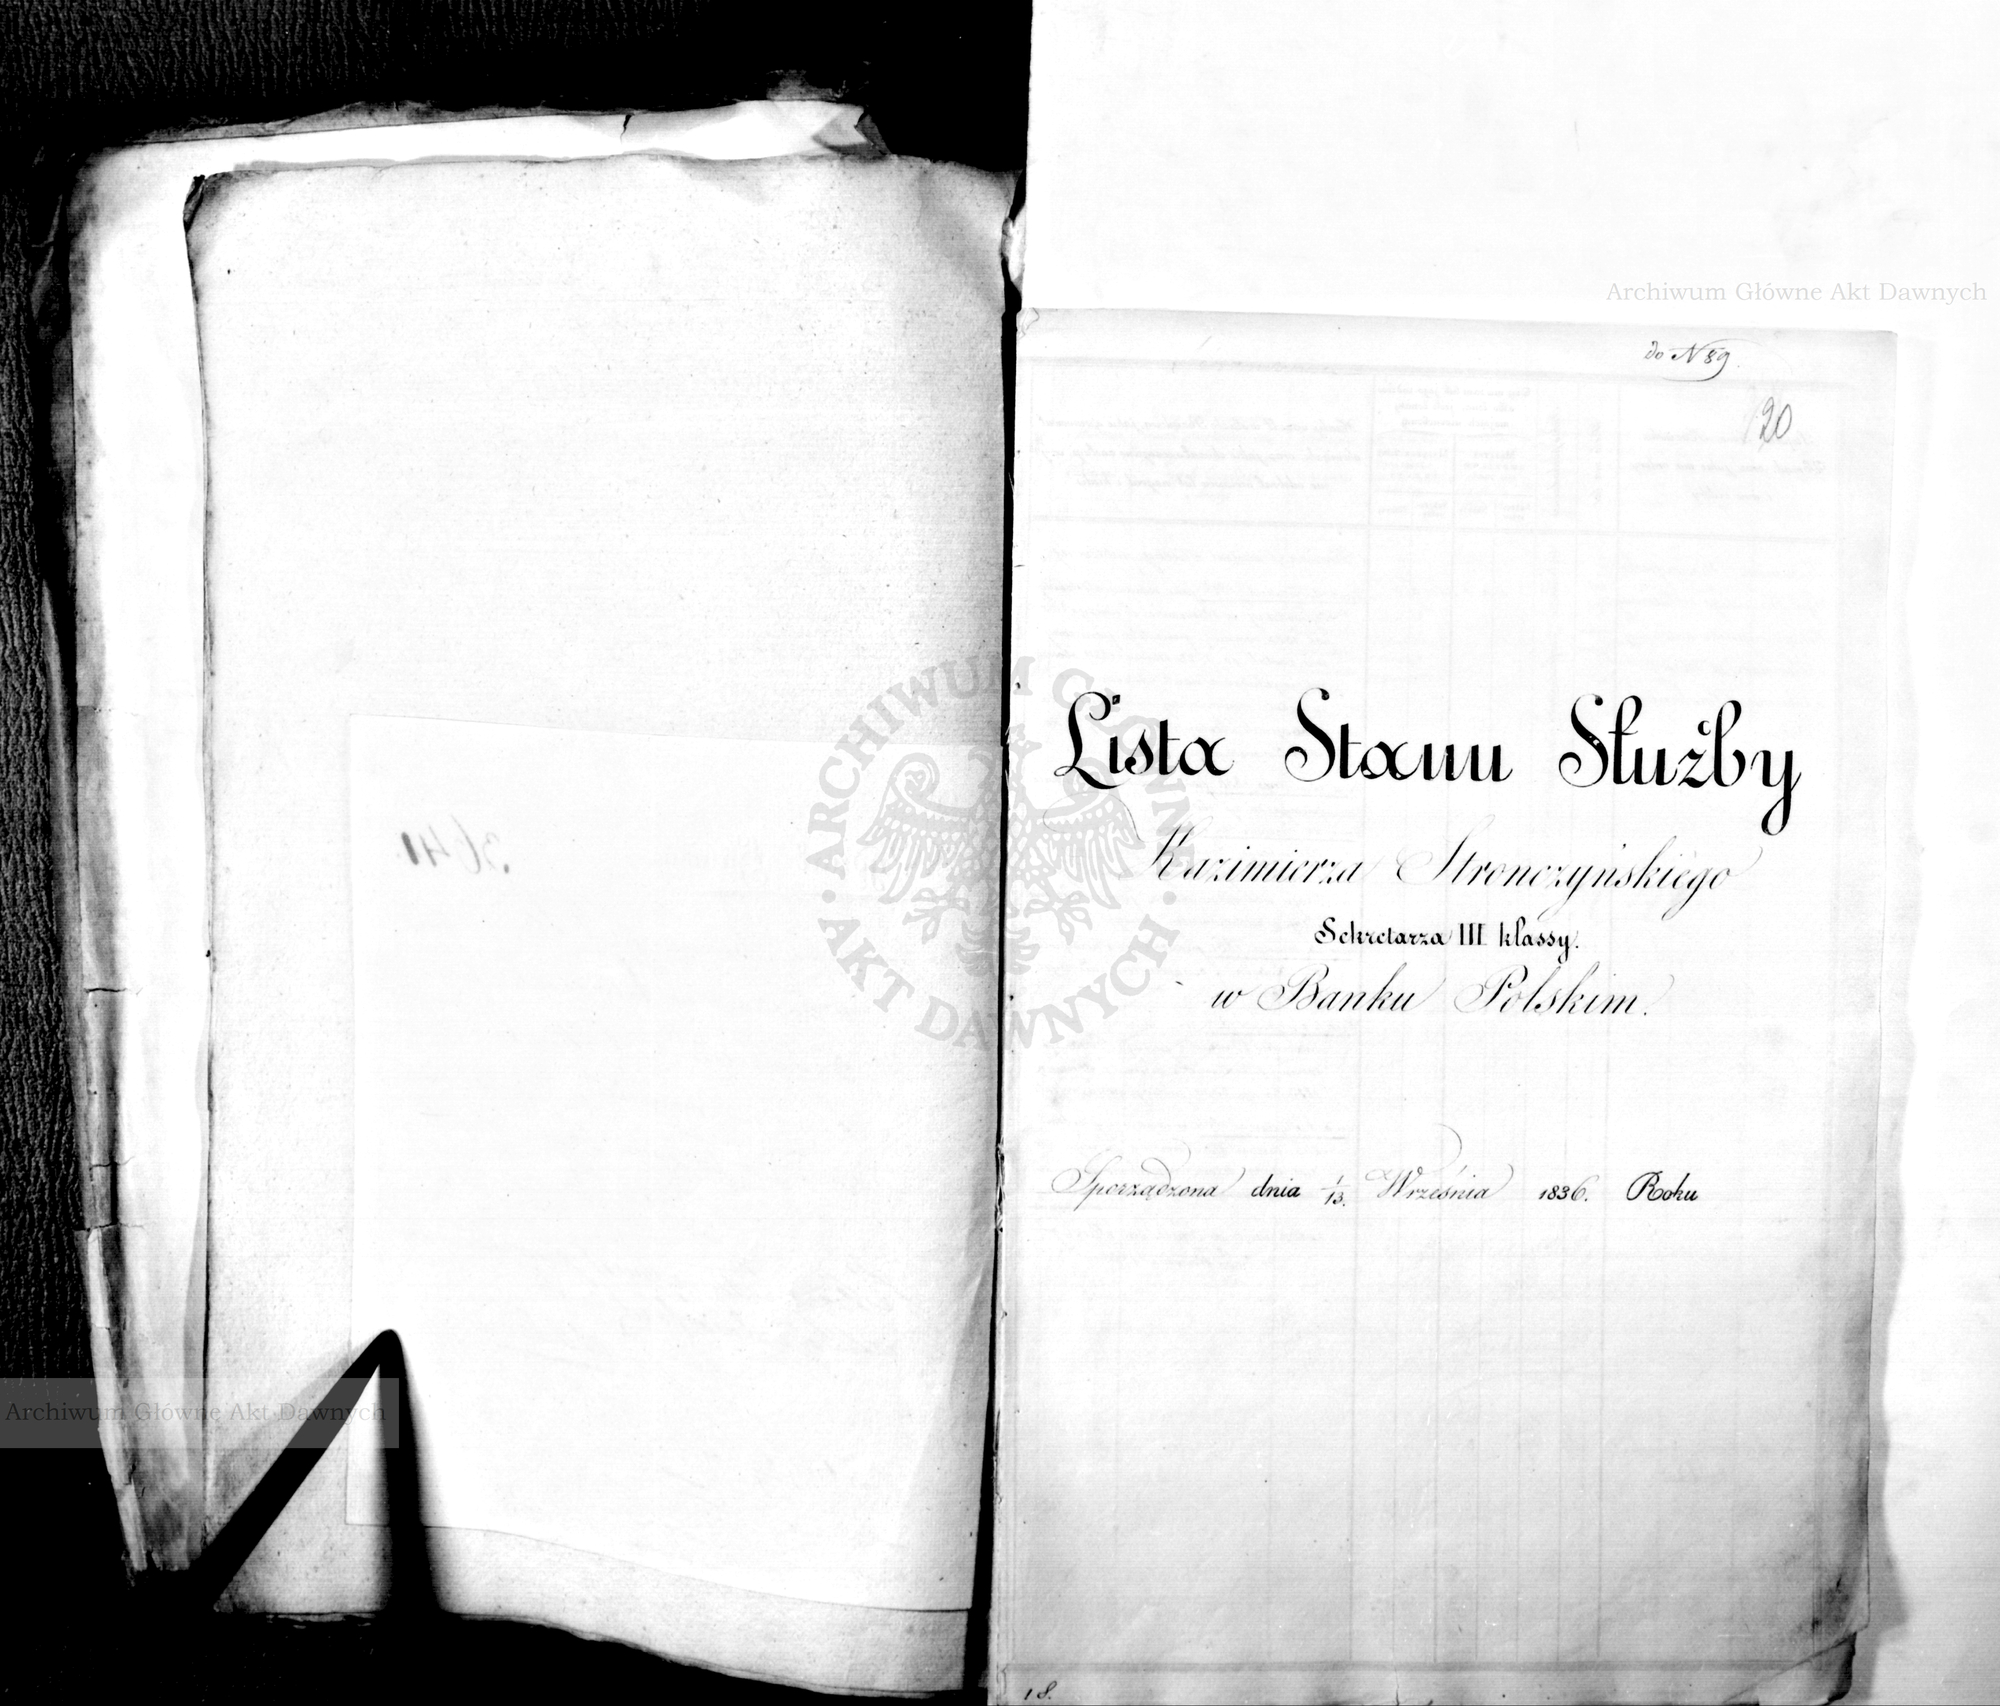 Archiwum Główne Akt Dawnych
do N 89.
120
Lista Stanu Służby
Kazimierza Stronczyńskiego
Sekretarza III klassy.
w Banku Polskim.
Sporządzona dnia 1/13. Września 1836. Roku
18.
3641
ARCHIWUM GŁÓWNE · AKT DAWNYCH ·
Archiwum Główne Akt Dawnych